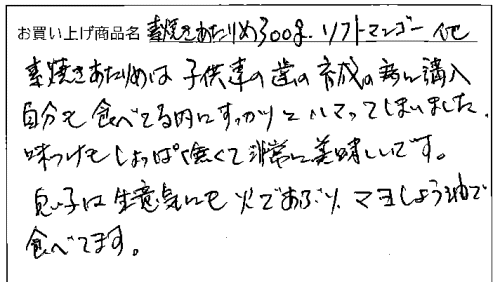 お買い上げ商品名 素焼きあたりめ300g. ソフトマンゴー 他
素焼きあたりめは 子供達の歯の育成の為に購入
自分も食べてる内にすっかりとハマってしまいました.
味つけもしょっぱく無くて非常に美味しいです。
息子は生意気にも火であぶり、マヨしょう油で
食べてます。